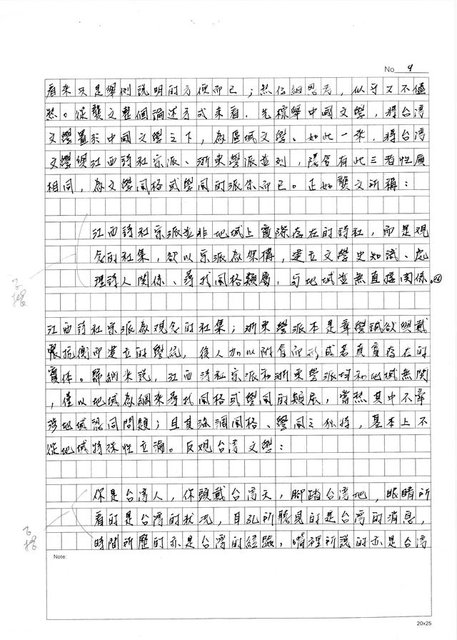 No. 9
看來只是舉例說明的方便而已；然仔細思考，似乎又不儘
然。從龔文整個論述方式來看，先標舉中國文學，將台灣
文學置於中國文學之下，為區域文學。如此一來，將台灣
文學與江西詩社宗派、浙東學派並列，隱含有此三者性質
相同，為文學風格或學風的派分而已。正如龔文所稱：
江西詩社宗派並非地域上實際存在的詩社，而是觀
念的社集，欲以宗派為架構，建立文學史知識、處
理詩人關係、尋找風格類屬，與地域並無直接關係。
江西詩社宗派為觀念的社集；浙東學派本是章學誠欲
而建立的學統，後人加以附會而形成若真實存在的
實體。歸納來說，江西詩社宗派和浙東學派均和地域無關
，僅以地域為網來尋找風格或學風的類屬，當然其中不牽
涉地域認同問題；且其強調風格、學風之傳特，基本上不
從地域特殊性立論。反觀台灣文學：
你是台灣人，你頭戴台灣天，腳踏台灣地，眼睛所
看的是台灣的狀況，耳孔所聽見的是台灣的消息，
時間所歷的亦是台灣的經驗，嘴裡所說的亦是台灣
Note:
20×25